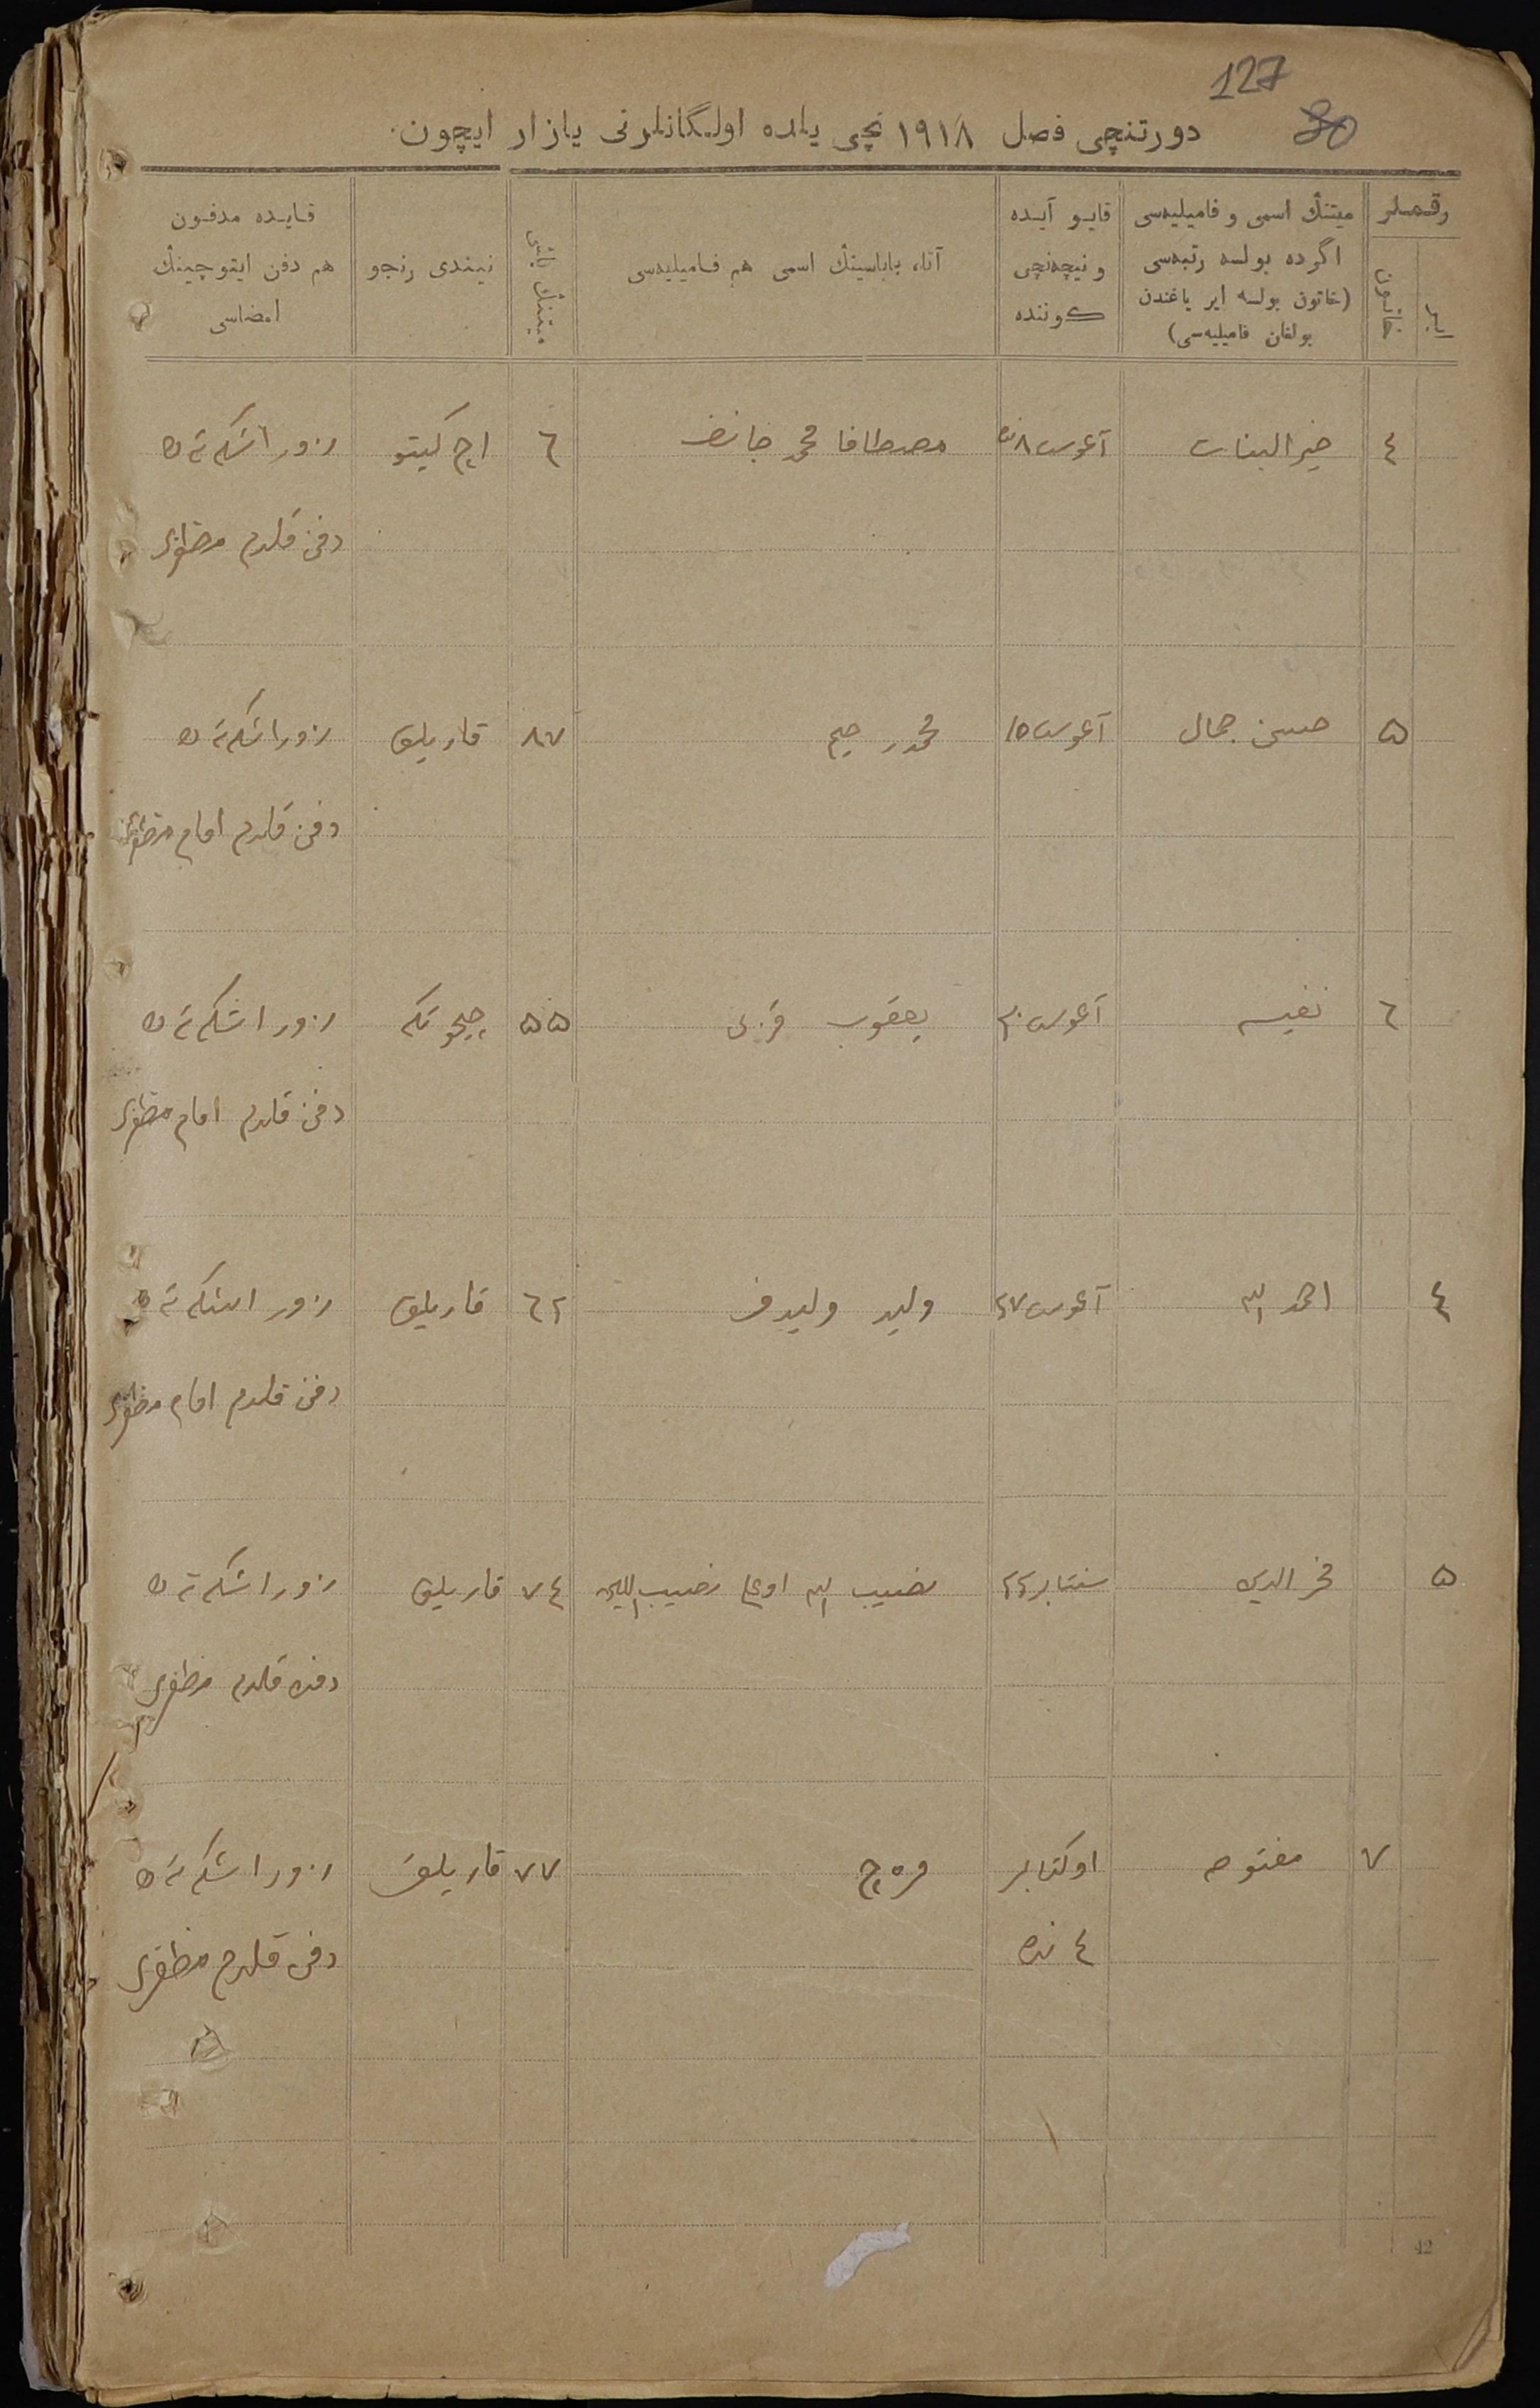 127
80
دورتنچی فصل ۱۹۱۸ نچی یلده اولگانلرنی یازار ایچون
رقملر
ایرلر
خاتون
میتنڭ اسمی و فامیلیەسی
اگرده بولسه رتبەسی
(خاتون بولسه ایر یاغندن
بولغان فامیلیەسی)
قایو آیده
و نیچەنچی
کوننده
آتا، باباسینڭ اسمی هم فامیلیەسی
میتنڭ یاشی
نیندی رنجو
قایده مدفون
هم دفن ایتوچینڭ
امضاسی
٤ خیرالبنات آغوست ٨ نده مصطافا محمد جانف ٦ اچ کیتو زور اشکه تە
دفن قلدم مظفری
۵ حسن جمال آغوست ۱۵ محمدرحیم ۸۷ قاریلق زور اشکه تە
دفن قلدم امام مظفری
٦ نفیسه آغوست ۲۰ یعقوب قزی ۵۵ چیچوتکه زور اشکه تە
دفن قلدم امام مظفری
٤ احمد الله آغوست ۲۷ ولید ولیدف ٦۲ قاریلق زور اشکه تە
دفن قلدم امام مظفری
۵ فخرالدین سنتابر ۲۲ نصیب الله اوغلی نصیب اللین ۷٤ قاریلق زور اشکه تە
دفن قلدم مظفری
۷ مفتوحه اوکتابر ۷۷ قاریلق زور اشکه تە
٤ نده دفن قلدم مظفری
42